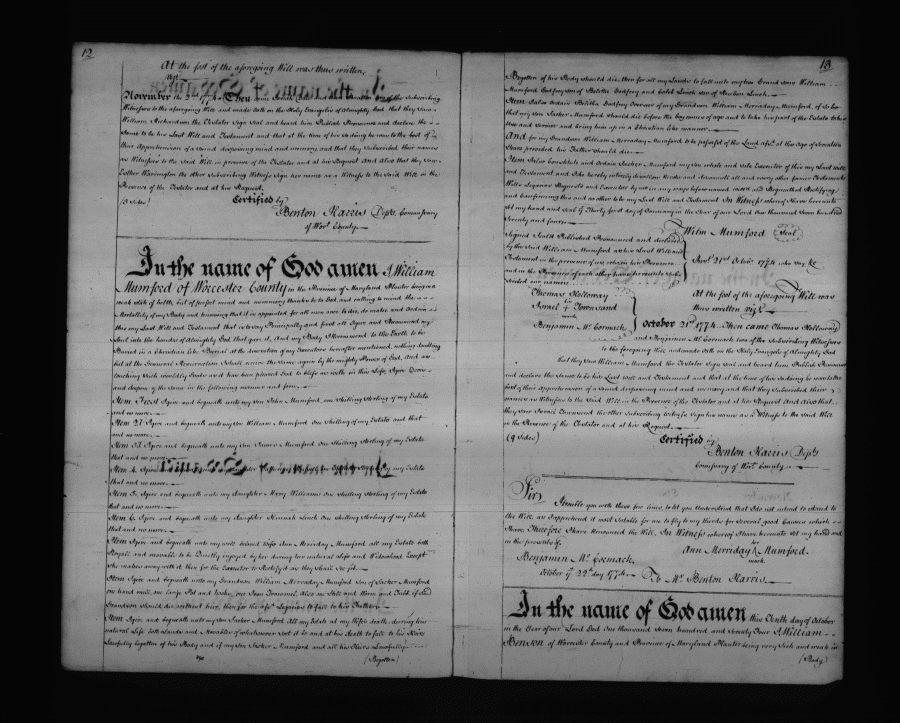 12
At the foot of the aforegoing Will was thus written,
November the 2nd 1774. Then came
Witnesses to the aforegoing Will and made oath on the Holy Evangelist of Almighty God that they saw
William Richardson the Testator Sign Seal and heard him Publish Pronounce and declare the
Same to be his Last Will and Testament and that at the time of his so doing he was to the best of
their Apprehension of a Sound disposing mind and memory and that they Subscribed their names
as Witnesses to the Said Will in presence of the Testator and at his Request and Also that they saw
Esther Warrington the other Subscribing Witness Sign her name as a Witness to the Said Will in the
Presence of the Testator and at his Request.
Certified by
Benton Harris Depty Commissary
of Worr County
In the name of God amen I William
Mumford of Worcester County in the Province of Maryland Planter being in a
weak State of health but of perfect mind and memory thanks be to God and calling to mind the
Mortality of my Body and knowing that it is appointed for all men once to die, do make and Ordain
this my Last Will and Testament that is to say Principally and first of all I give and Recommend my
Soul into the hands of Almighty God that gave it, And my Body I Recommend to the Earth to be
Buried in a Christian like Burial at the discretion of my Executors hereafter mentioned, nothing doubting
but at the General Resurrection I shall receive the same again by the mighty Power of God, And as
touching Such worldly Estate as it hath been pleased God to bless me with in this Life, I give Demise
and dispose of the same in the following manner and form.
Item First I give and bequeath unto my son John Mumford, one Shilling Sterling of my Estate
and no more.
Item 2d I give and bequeath unto my Son William Mumford One Shilling of my Estate and that
and no more.
Item 3d I give and bequeath unto my Son James Mumford One Shilling Sterling of my Estate
that and no more.
Item 4. I give my Estate
that and no more.
Item 5. I give and bequeath unto my daughter Mary Williams one Shilling sterling of my Estate
that and no more.
Item 6. I give and bequeath unto my daughter Hannah Linch One Shilling Sterling of my Estate
that and no more.
Item I give and bequeath unto my well beloved Wife Ann Merriday Mumford all my Estate both
Royall and movable to be Quietly enjoyed by her during her natural Life and Widowhood Except
She makes away with it then for the Executor to Rectify it as they Shall See fit.
Item I give and bequeath unto my Grandson William Merraday Mumford Son of Sacker Mumford
one hand mill, one large Pot and hooks, one Iron
Grandson should die without heirs, then for the afsd Legacies to fall to his Father
Item I give and bequeath unto my Son Sacker Mumford All my Estate at my Wifes death during his
natural Life both Lands and Movables of whatsoever Sort it be and at his death to fall to his Heirs
Lawfully begotten of his Body and if my son Sacker Mumford and all his Heirs Lawfully
(Begotten)
13
Begotten of his Body should die, then for all my Lands to fall unto my two Grand Sons William
Mumford Godfrey son of Belitha Godfrey and Linch son of Reuben Linch.
Item I also Ordain Belitha Godfrey Overseer of my Grandson William Merraday Mumford, if it so be
that my son Sacker Mumford should die before the boy comes of age and to take his part of the Estate to his
use and Service and bring him up in a Christian like manner
And for my Grandson William Merraday Mumford to be possesed of the Land afsd at the Age of Seventeen
Years provided his Father should die
Item I also Constitute and Ordain Sacker Mumford my Son whole and sole Executor of this my Last Will
and Testament, and I do hereby utterly disallow Revoke and Disannull all and every other former Testaments
Wills Legacies Requests and Executors by me in any ways before named Willed and Bequeathed Ratifying
and Confirming this and no other to be my Last Will and Testament In Witness whereof I have hereunto
Set my hand and seal ye Thirty first day of January in the Year of our Lord One thousand Seven hundred
Seventy and four.
Willm Mumford Seal
Signed Sealed Published Pronounced and declared
by the Said William Mumford as his Last Will and
Testament in the presence of us who in his Presence
and in the Presence of each other have hereunto subs
cribed our names
Thomas Holloway
his
Israel + Townsend
mark
Benjamin Mc Cormack
At the foot of the aforegoing Will was
thus written vizt
October 21st 1774. Then came Thomas Holloway
and Benjamin Mc Cormack two of the Subscribing Witnesses
to the foregoing Will and made Oath on the Holy Evangelist of Almighty God
that they saw William Mumford the Testator Sign Seal and heard him Publish Pronounce
and declare the Same to be his Last Will and Testament and that at the time of his so doing he was to the
best of their apprehension of a Sound disposing mind and memory and that they Subscribed their
names as Witnesses to the Said Will in the Presence of the Testator and at his Request And also that
they saw Israel Townsend the other Subscribing Witness Sign his name as a Witness to the Said Will
in the Presence of the Testator and at his Request.
Certified by
Benton Harris Depty
Comissary of Worr County
Sir,
I trouble you with these few lines to let you Understand that I do not intend to Stand to
the Will, as I apprehend it most Suitable for me to fly to my thirds for several good Causes which
I have, Therefore I have Renounced the Will, In Witness whereof I have hereunto Set my hand
in the presents of
her
Ann Merriday Mumford.
mark
Benjamin Mc Cormack
October ye 22nd day 1774
To Mr Benton Harris
In the name of God amen this Tenth day of October
in the Year of our Lord God One thousand seven hundred and Seventy Four I William
Benson of Worcester County and Province of Maryland Planter being very Sick and weak in
(Body)